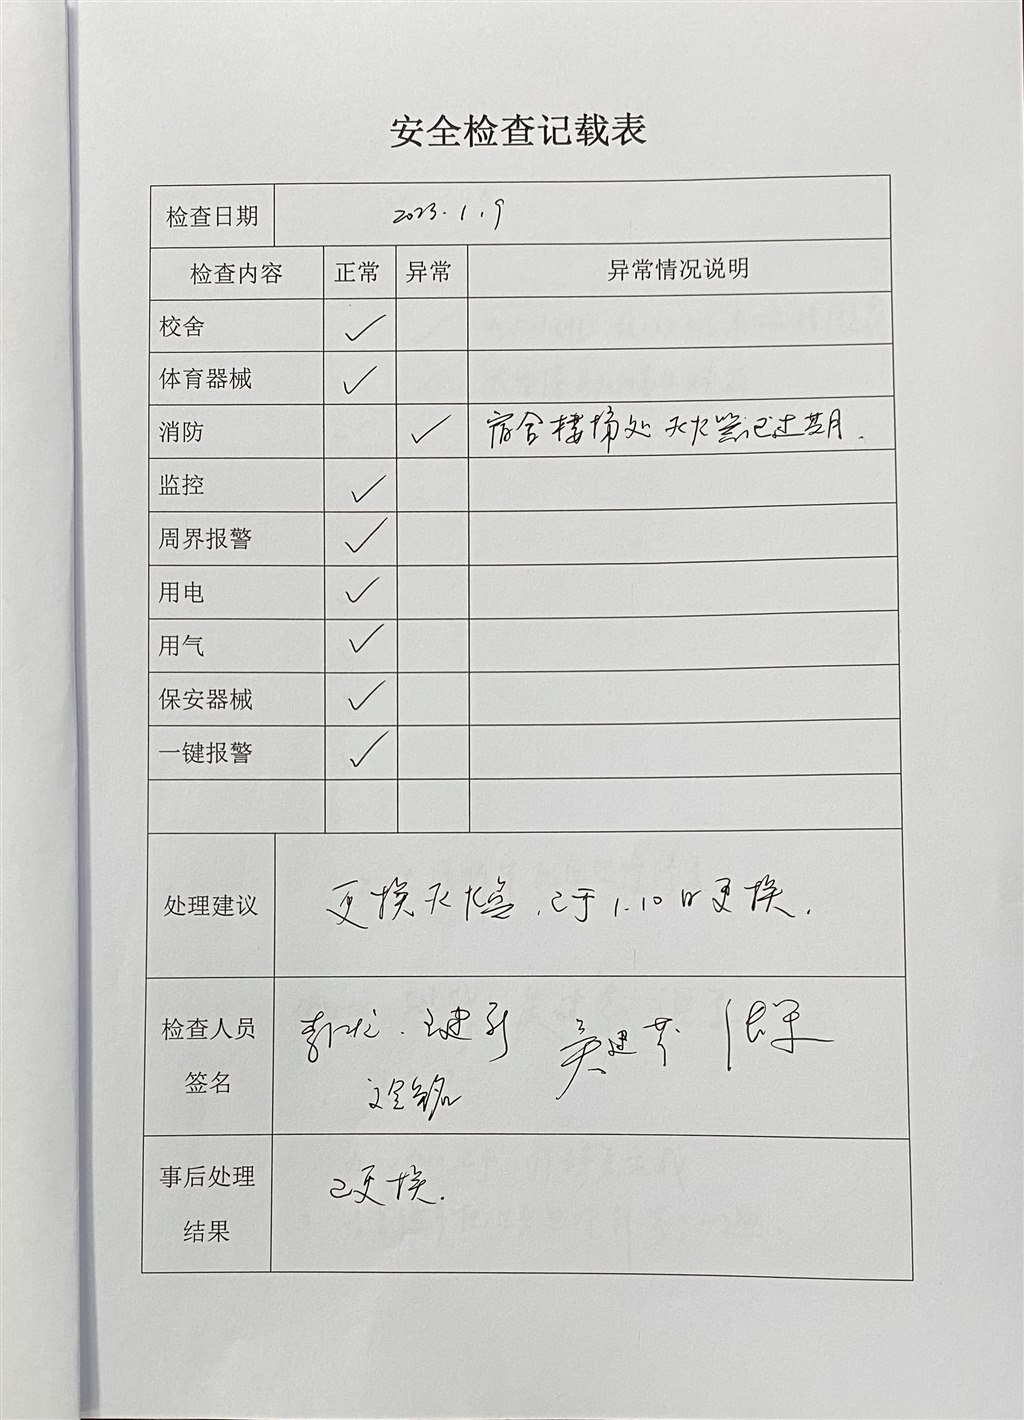 安全检查记载表
检查日期 2023.1.9
检查内容 正常 异常 异常情况说明
校舍 ✓
体育器械 ✓
消防 ✓ 宿舍楼梯处灭火器已过期.
监控 ✓
周界报警 ✓
用电 ✓
用气 ✓
保安器械 ✓
一键报警 ✓
处理建议 更换灭火器,已于1.10日更换.
检查人员
签名
事后处理
结果
已更换.